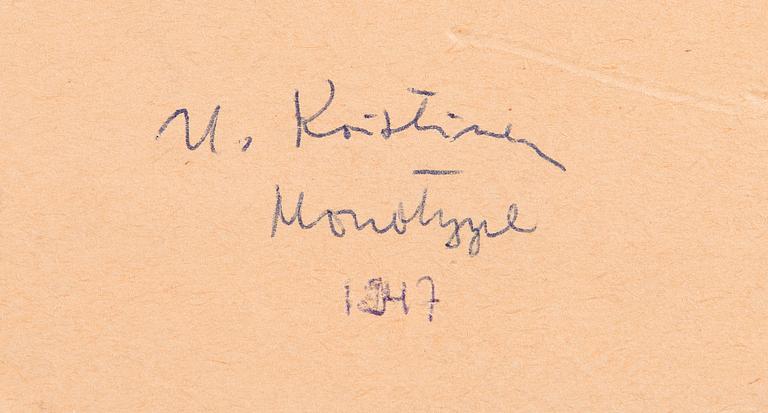 U. Koistinen
Monotype
1947